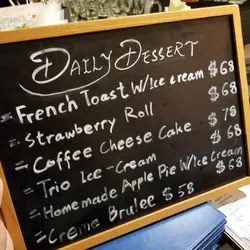 Daily Dessert
= French Toast W/Ice cream $68
= Strawberry Roll $68
= Coffee Cheese Cake $78
= Trio Ice-Cream $68
= Homemade Apple Pie W/Ice Cream $68
= Creme Brulee $58